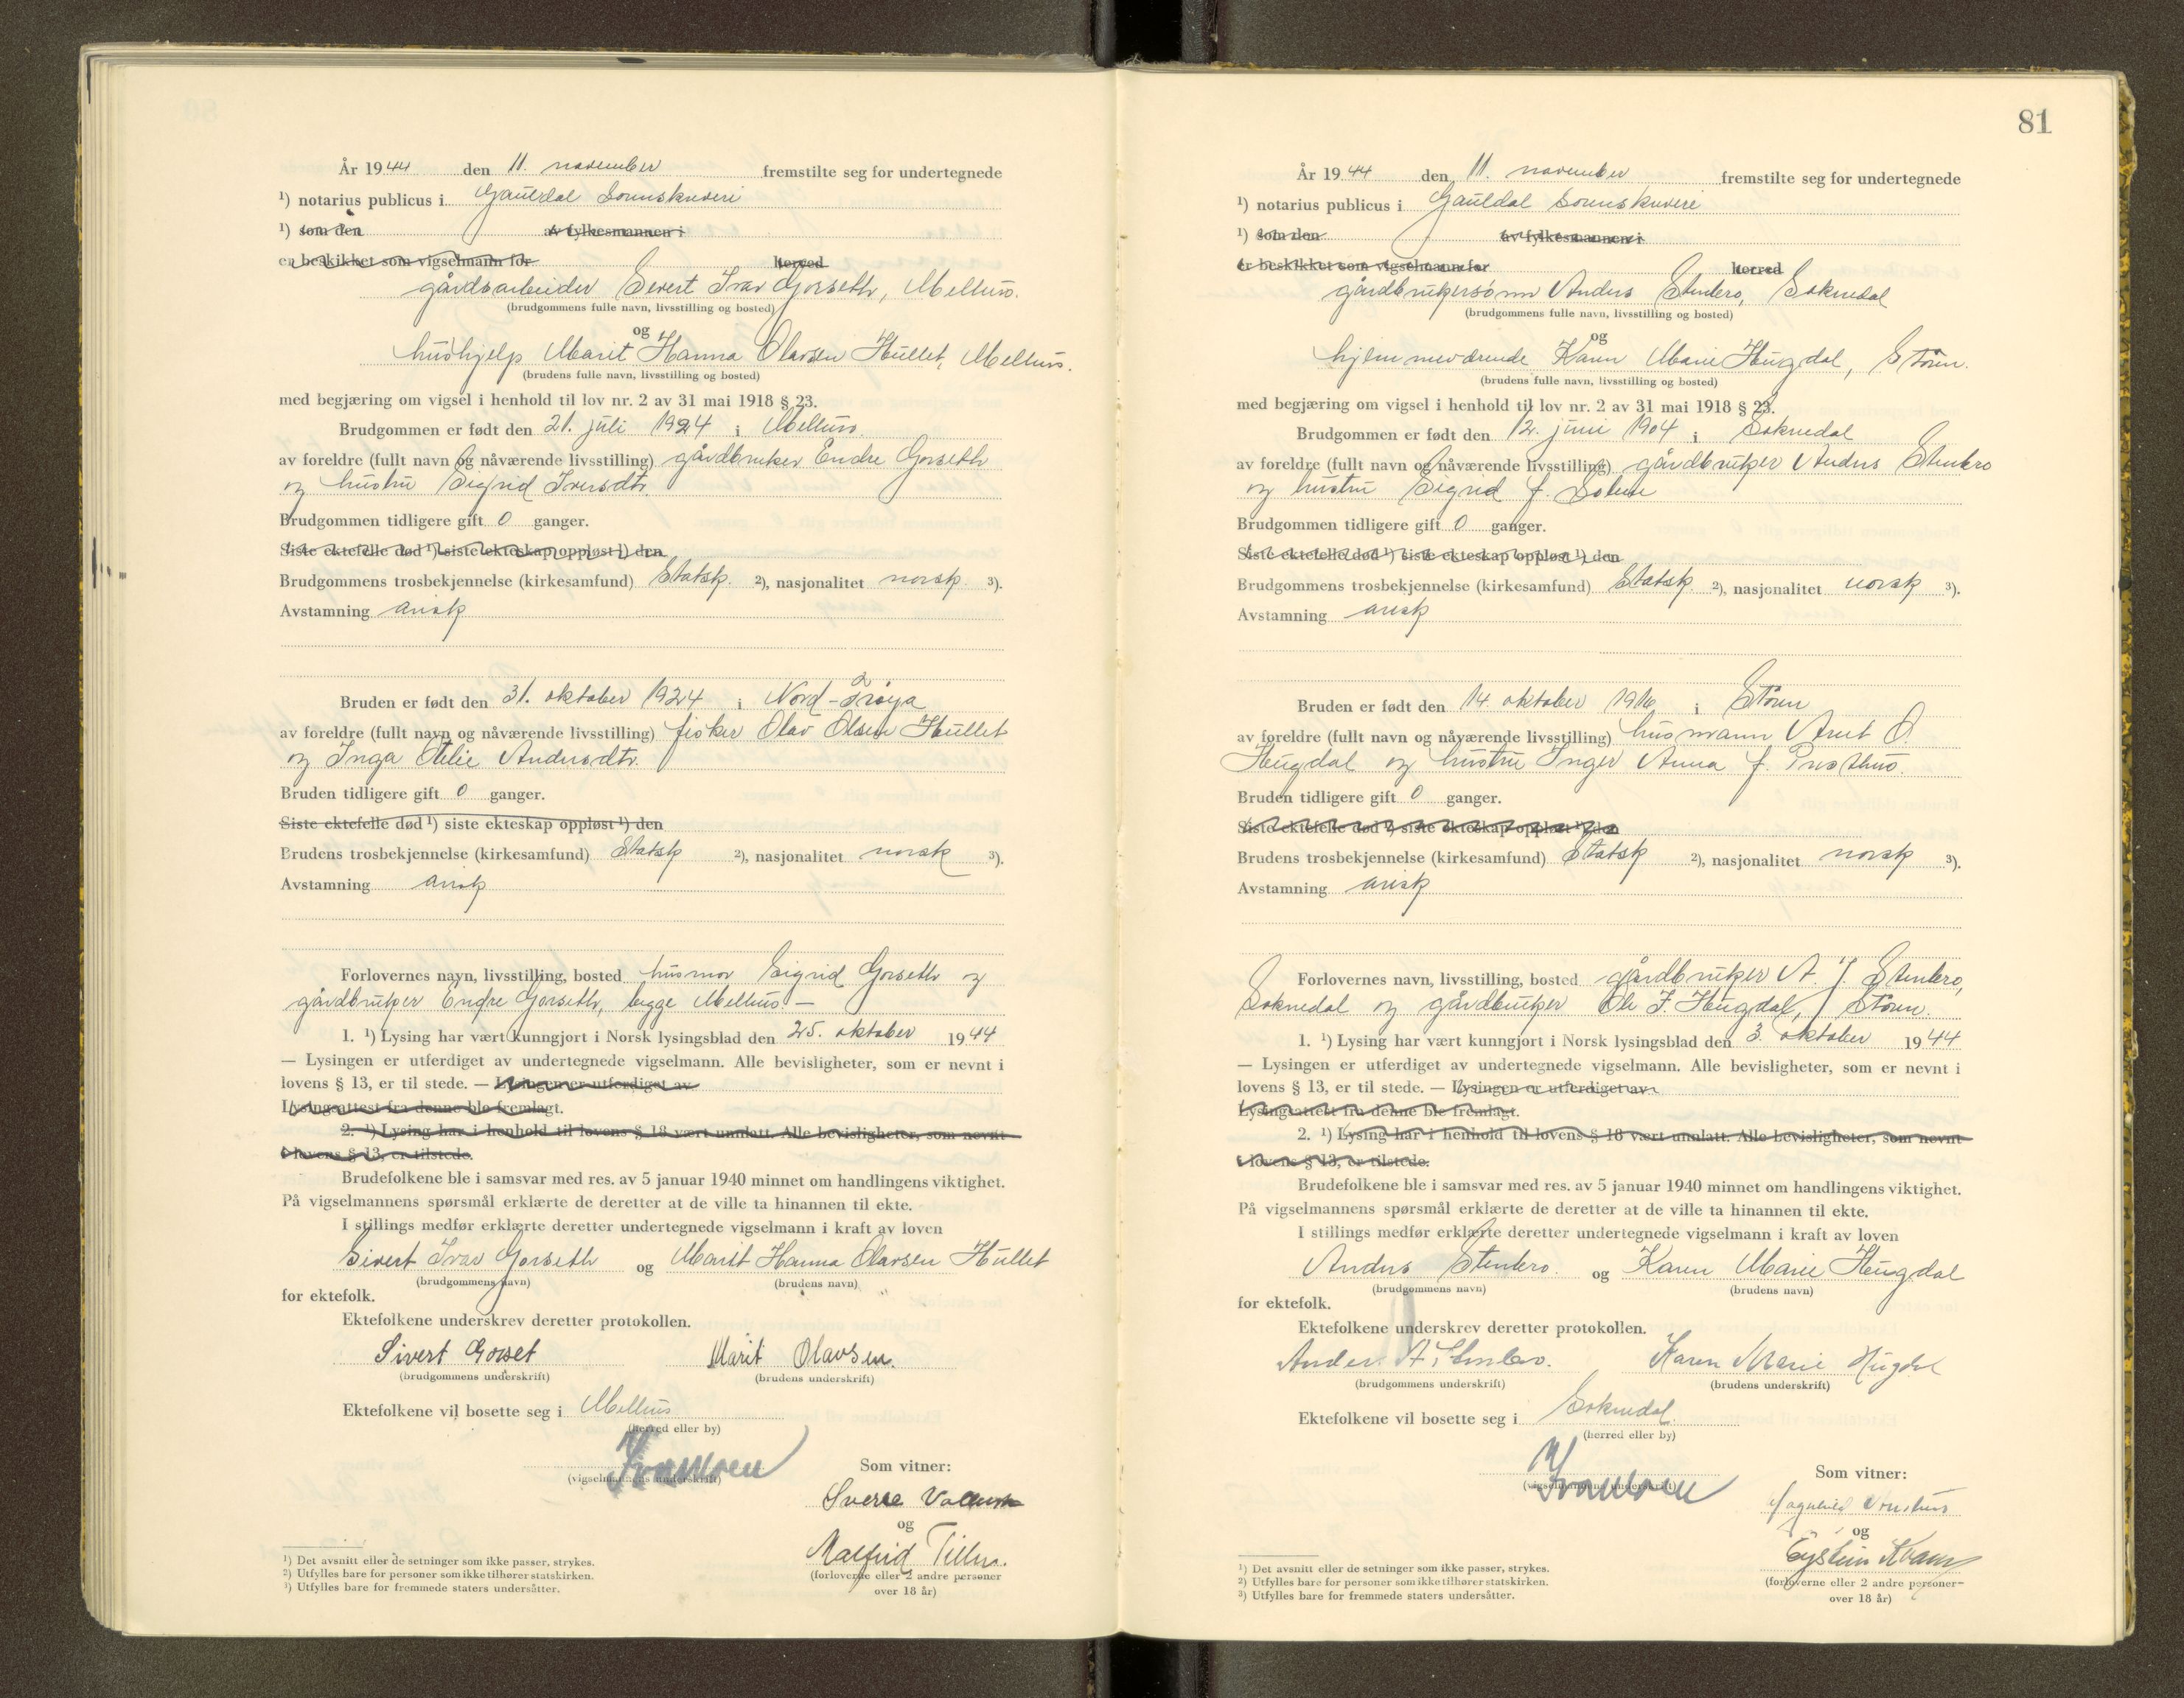 År 1944 den 11. november fremstilte seg for undertegnede
¹) notarius publicus i Gauldal Sorenskriveri
¹) som den av fylkesmannen i
er beskikket som vigselmann for herred
gårdsarbeider Sivert Ivar Gorseth, Melhus.
(brudgommens fulle navn, livsstilling og bosted)
og
hushjelp Marit Hanna Olavsen Hullet, Melhus.
(brudens fulle navn, livsstilling og bosted)
med begjæring om vigsel i henhold til lov nr. 2 av 31 mai 1918 § 23.
Brudgommen er født den 21. juli 1924 i Melhus
av foreldre (fullt navn og nåværende livsstilling) gårdbruker Endre Gorseth
og hustru Sigrid Iversdtr.
Brudgommen tidligere gift 0 ganger.
Siste ektefelle død ¹) siste ekteskap oppløst ¹) den
Brudgommens trosbekjennelse (kirkesamfund) Statsk. ²), nasjonalitet norsk. ³).
Avstamning arisk
Bruden er født den 31. oktober 1924 i Nord-Frøya
av foreldre (fullt navn og nåværende livsstilling) fisker Olav Olsen Hullet
og Inga Otelie Andersdtr.
Bruden tidligere gift 0 ganger.
Siste ektefelle død ¹) siste ekteskap oppløst ¹) den
Brudens trosbekjennelse (kirkesamfund) Statsk ²), nasjonalitet norsk ³).
Avstamning arisk
Forlovernes navn, livsstilling, bosted husmor Sigrid Gorseth og
gårdbruker Endre Gorseth, begge Melhus —
1. ¹) Lysing har vært kunngjort i Norsk lysingsblad den 25. oktober 1944
— Lysingen er utferdiget av undertegnede vigselmann. Alle bevisligheter, som er nevnt i
lovens § 13, er til stede. — Lysingen er utferdiget av
Lysingsattest fra denne ble fremlagt.
2. ¹) Lysing har i henhold til lovens § 18 vært unnlatt. Alle bevisligheter, som nevnt
i lovens § 13, er tilstede.
Brudefolkene ble i samsvar med res. av 5 januar 1940 minnet om handlingens viktighet.
På vigselmannens spørsmål erklærte de deretter at de ville ta hinannen til ekte.
I stillings medfør erklærte deretter undertegnede vigselmann i kraft av loven
Sivert Ivar Gorseth og Marit Hanna Olavsen Hullet
(brudgommens navn) (brudens navn)
for ektefolk.
Ektefolkene underskrev deretter protokollen.
Sivert Gorset Marit Olavsen.
(brudgommens underskrift) (brudens underskrift)
Ektefolkene vil bosette seg i Melhus
(herred eller by)
(vigselmannens underskrift)
Som vitner:
Sverre
og
Malfrid
(forloverne eller 2 andre personer
over 18 år)
¹) Det avsnitt eller de setninger som ikke passer, strykes.
²) Utfylles bare for personer som ikke tilhører statskirken.
³) Utfylles bare for fremmede staters undersåtter.
81
År 1944 den 11. november fremstilte seg for undertegnede
¹) notarius publicus i Gauldal Sorenskriveri
¹) som den av fylkesmannen i
er beskikket som vigselmann for herred
gårdbrukersønn Anders Stenbro, Soknedal
(brudgommens fulle navn, livsstilling og bosted)
og
hjemmeværende Karen Marie Hugdal, Støren.
(brudens fulle navn, livsstilling og bosted)
med begjæring om vigsel i henhold til lov nr. 2 av 31 mai 1918 § 23.
Brudgommen er født den 12. juni 1904 i Soknedal
av foreldre (fullt navn og nåværende livsstilling) gårdbruker Anders Stenbro
og hustru Sigrid f. Solem
Brudgommen tidligere gift 0 ganger.
Siste ektefelle død ¹) siste ekteskap oppløst ¹) den
Brudgommens trosbekjennelse (kirkesamfund) Statsk. ²), nasjonalitet norsk ³).
Avstamning arisk
Bruden er født den 14 oktober 1916 i Støren
av foreldre (fullt navn og nåværende livsstilling) husmann Arnt O.
Hugdal og hustru Inger Anna f. Presthus.
Bruden tidligere gift 0 ganger.
Siste ektefelle død ¹) siste ekteskap oppløst ¹) den
Brudens trosbekjennelse (kirkesamfund) Statsk ²), nasjonalitet norsk ³).
Avstamning arisk
Forlovernes navn, livsstilling, bosted gårdbruker A. J. Stenbro,
Soknedal og gårdbruker Ole J. Hugdal, Støren.
1. ¹) Lysing har vært kunngjort i Norsk lysingsblad den 3. oktober 1944
— Lysingen er utferdiget av undertegnede vigselmann. Alle bevisligheter, som er nevnt i
lovens § 13, er til stede. — Lysingen er utferdiget av
Lysingsattest fra denne ble fremlagt.
2. ¹) Lysing har i henhold til lovens § 18 vært unnlatt. Alle bevisligheter, som nevnt
i lovens § 13, er tilstede.
Brudefolkene ble i samsvar med res. av 5 januar 1940 minnet om handlingens viktighet.
På vigselmannens spørsmål erklærte de deretter at de ville ta hinannen til ekte.
I stillings medfør erklærte deretter undertegnede vigselmann i kraft av loven
Anders Stenbro. og Karen Marie Hugdal
(brudgommens navn) (brudens navn)
for ektefolk.
Ektefolkene underskrev deretter protokollen.
Anders A Stenbro. Karen Marie Hugdal
(brudgommens underskrift) (brudens underskrift)
Ektefolkene vil bosette seg i Soknedal.
(herred eller by)
(vigselmannens underskrift)
Som vitner:
og
Eystein Kvam
(forloverne eller 2 andre personer
over 18 år)
¹) Det avsnitt eller de setninger som ikke passer, strykes.
²) Utfylles bare for personer som ikke tilhører statskirken.
³) Utfylles bare for fremmede staters undersåtter.